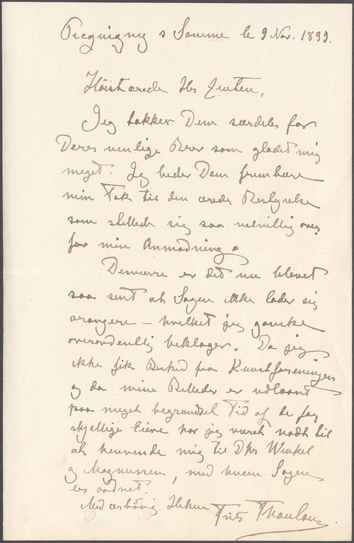 Picquigny s Somme le 9 Nov. 1899.
Høistærede Hr
Jeg takker Dem særdeles for
Deres venlige Brev som glædet mig
meget. Jeg beder Dem frembære
min Tak til den ærede Bestyrelse
som stillede sig saa velvillig over
for min Anmodning.
Desværre er det nu blevet
saa sent at Sagen ikke lader sig
arangere — hvilket jeg ganske
overordentlig beklager. Da jeg
ikke fik Besked fra Kunstforeningen
og da mine Billeder er udlaant
paa meget begrændset Tid af de for
skjellige Eiere har jeg været nødt til
at henvende mig til DHrr Winkel
og Magnussen, med hvem Sagen
er ordnet.
Med ærbødig Hilsen Frits Thaulow